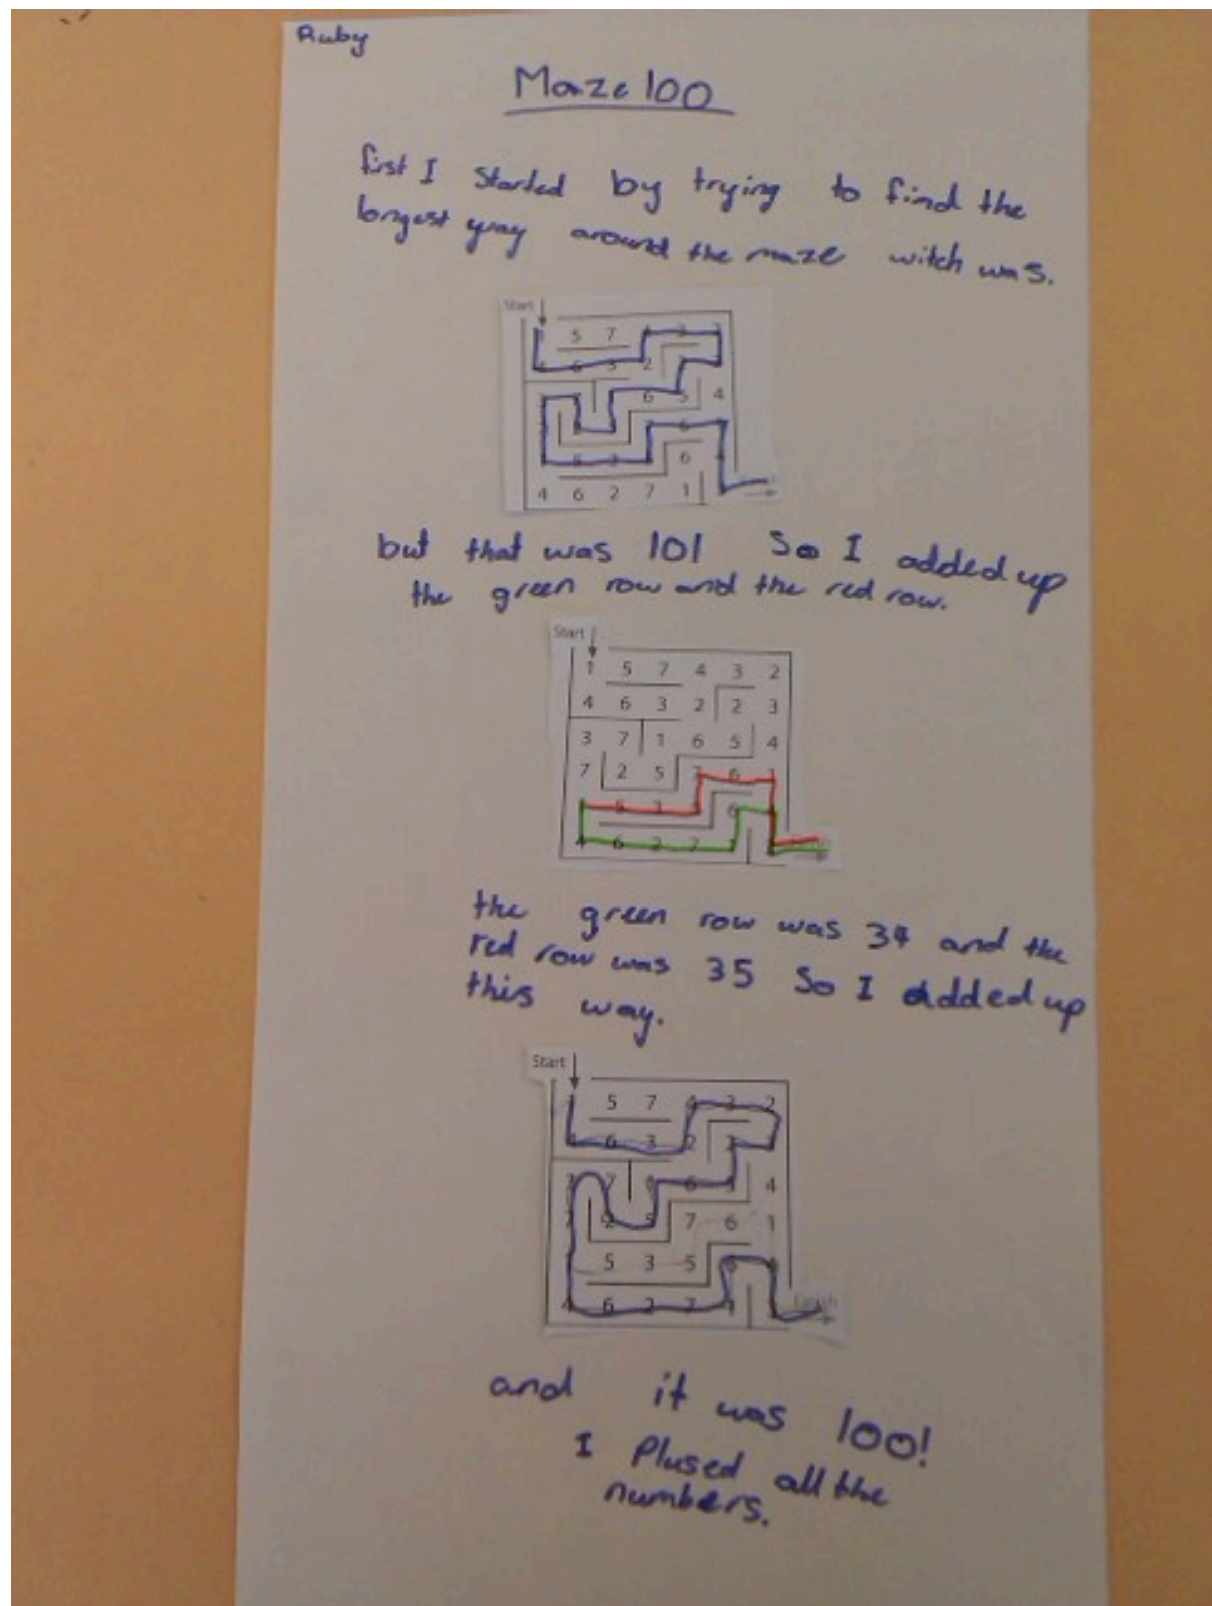 Ruby
Maze 100
first I started by trying to find the
longest way around the maze witch was.
Start
5 7
6 3 2
6 5 4
6
4 6 2 7 1
but that was 101 So I added up
the green row and the red row.
Start
1 5 7 4 3 2
4 6 3 2 2 3
3 7 1 6 5 4
7 2 5 7 6 1
5 3 6
4 6 2 7
the green row was 34 and the
red row was 35 So I added up
this way.
Start
1 5 7 4 3 2
4 6 3 2 2
3 7 6 5 4
7 2 5 7 6 1
5 3 5 6
4 6 2 7 1 Finish
and it was 100!
I Plused all the
numbers.